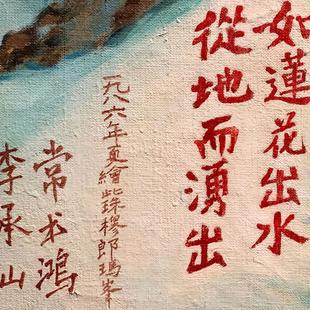 如蓮花出水
從地而湧出
一九八六年夏繪珠穆郎瑪峯
常书鸿
李承仙